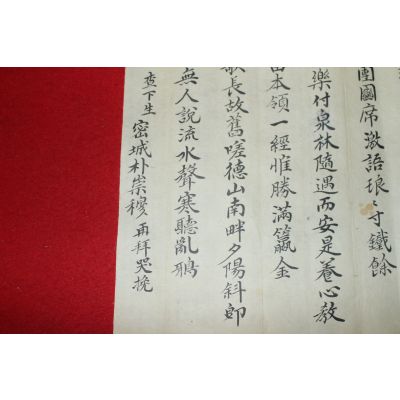 團圓席激語埌寸鐵餘
樂付泉林隨遇而安是養心教
本領一經惟勝滿籯金
歌長故舊嗟德山南畔夕陽斜郎
無人說流水聲寒聽亂鴉
查下生 密城朴崇稷 再拜哭挽